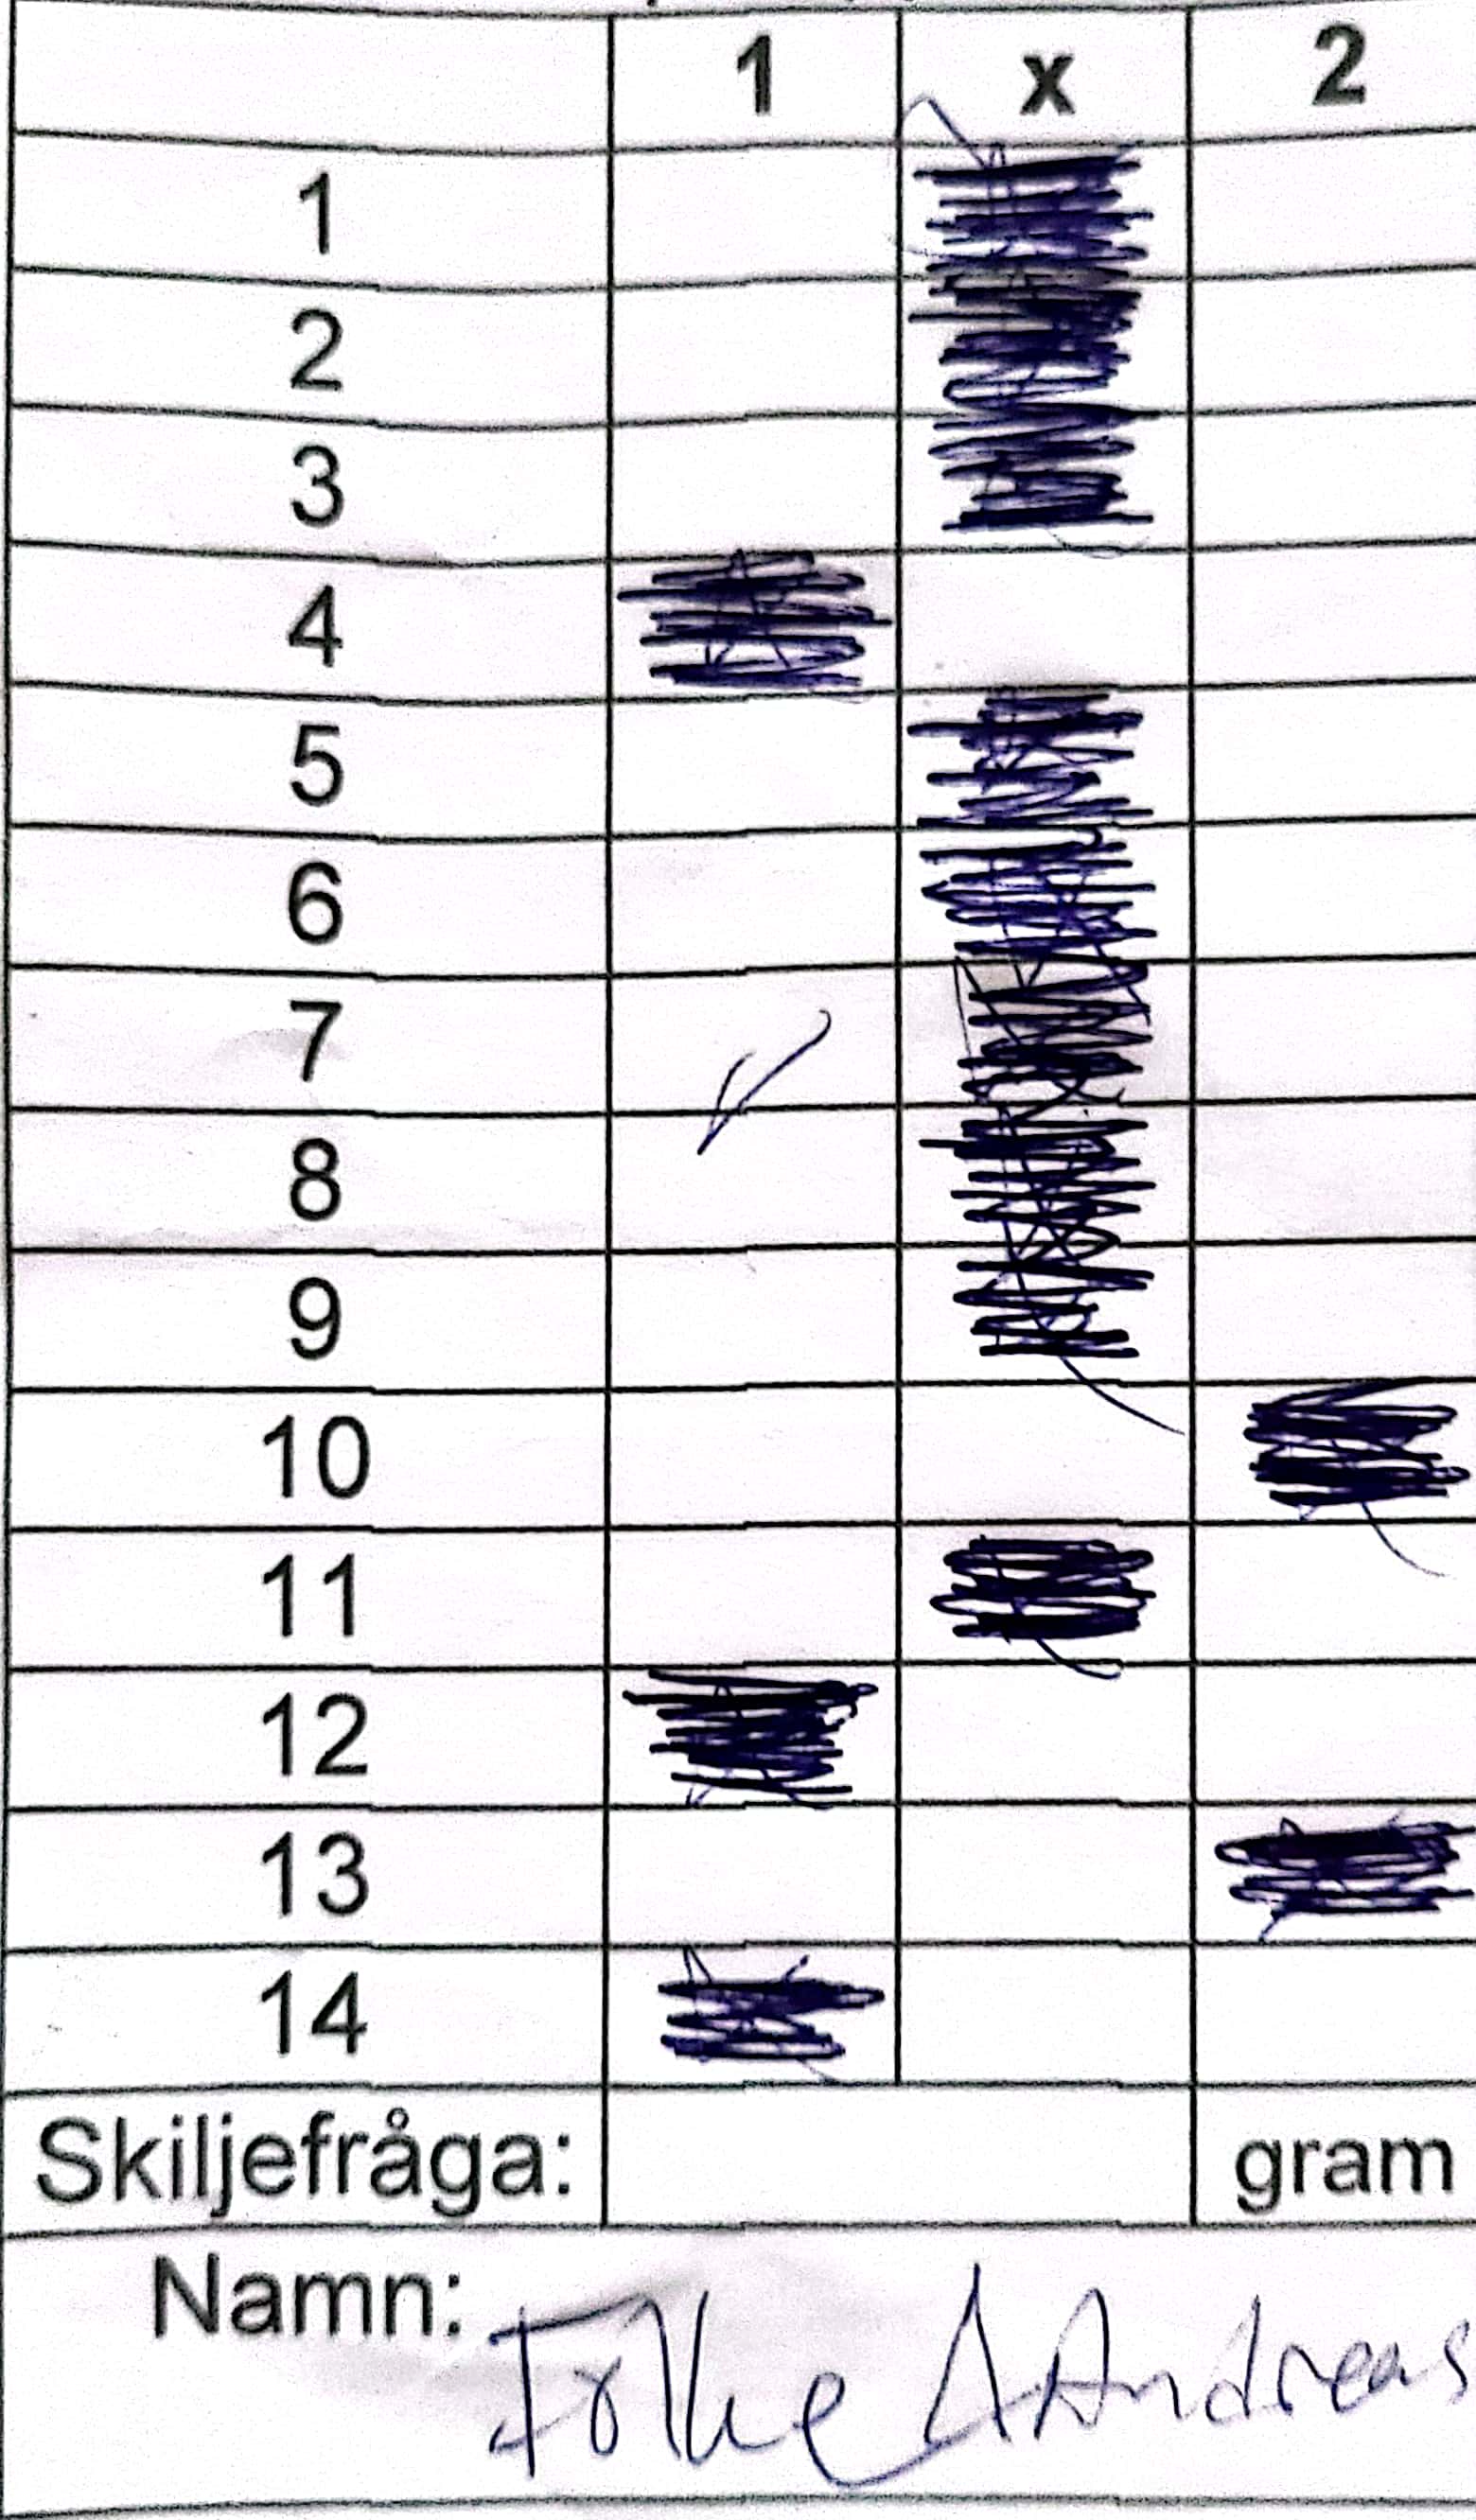 1 x 2
1
2
3
4
5
6
7
8
9
10
11
12
13
14
Skiljefråga: gram
Namn: Folke Andreas